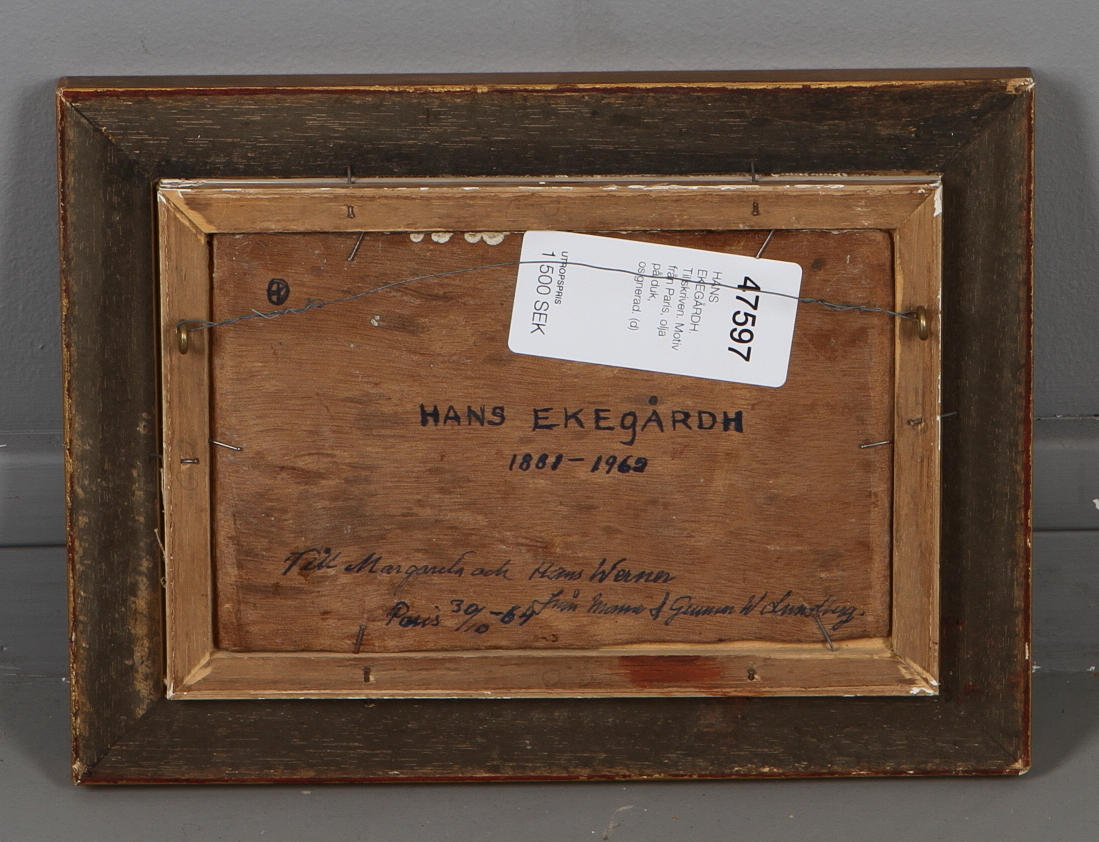 47597
HANS
EKEGÅRDH.
Tillskriven. Motiv
från Paris, olja
på duk,
osignerad. (d)
UTROPSPRIS
1 500 SEK
HANS EKEGÅRDH
1881-1962
Till Margareta och Hans Werner
Paris 30/10 -64 från Mama & Gunnar W Lundberg.